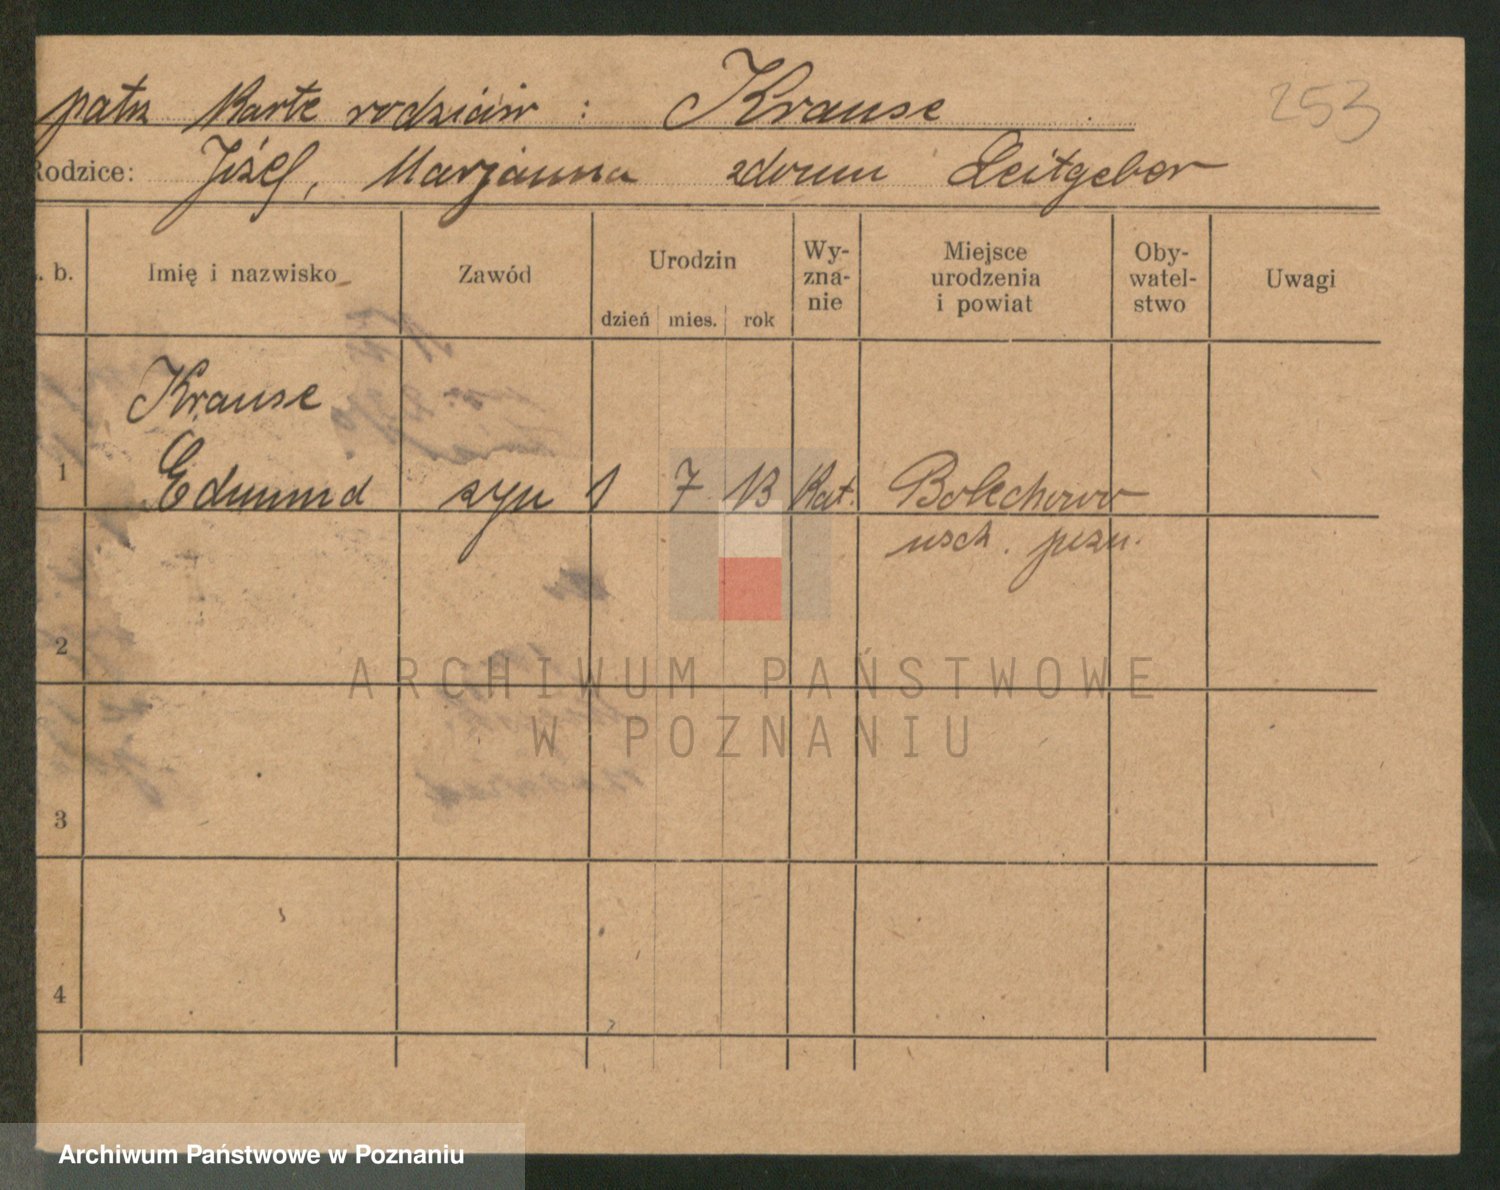 patrz Kartę rodziców : Krause
253
Rodzice: Józef, Marjanna zdomu Leitgeber
. b.
Imię i nazwisko
Zawód
Urodzin
dzień mies. rok
Wy-
zna-
nie
Miejsce
urodzenia
i powiat
Oby-
watel-
stwo
Uwagi
Krause
1 Edmund syn 1 7 13 Kat. Bolechowo
wsch. pozn.
2
3
4
ARCHIWUM PAŃSTWOWE
W POZNANIU
Archiwum Państwowe w Poznaniu